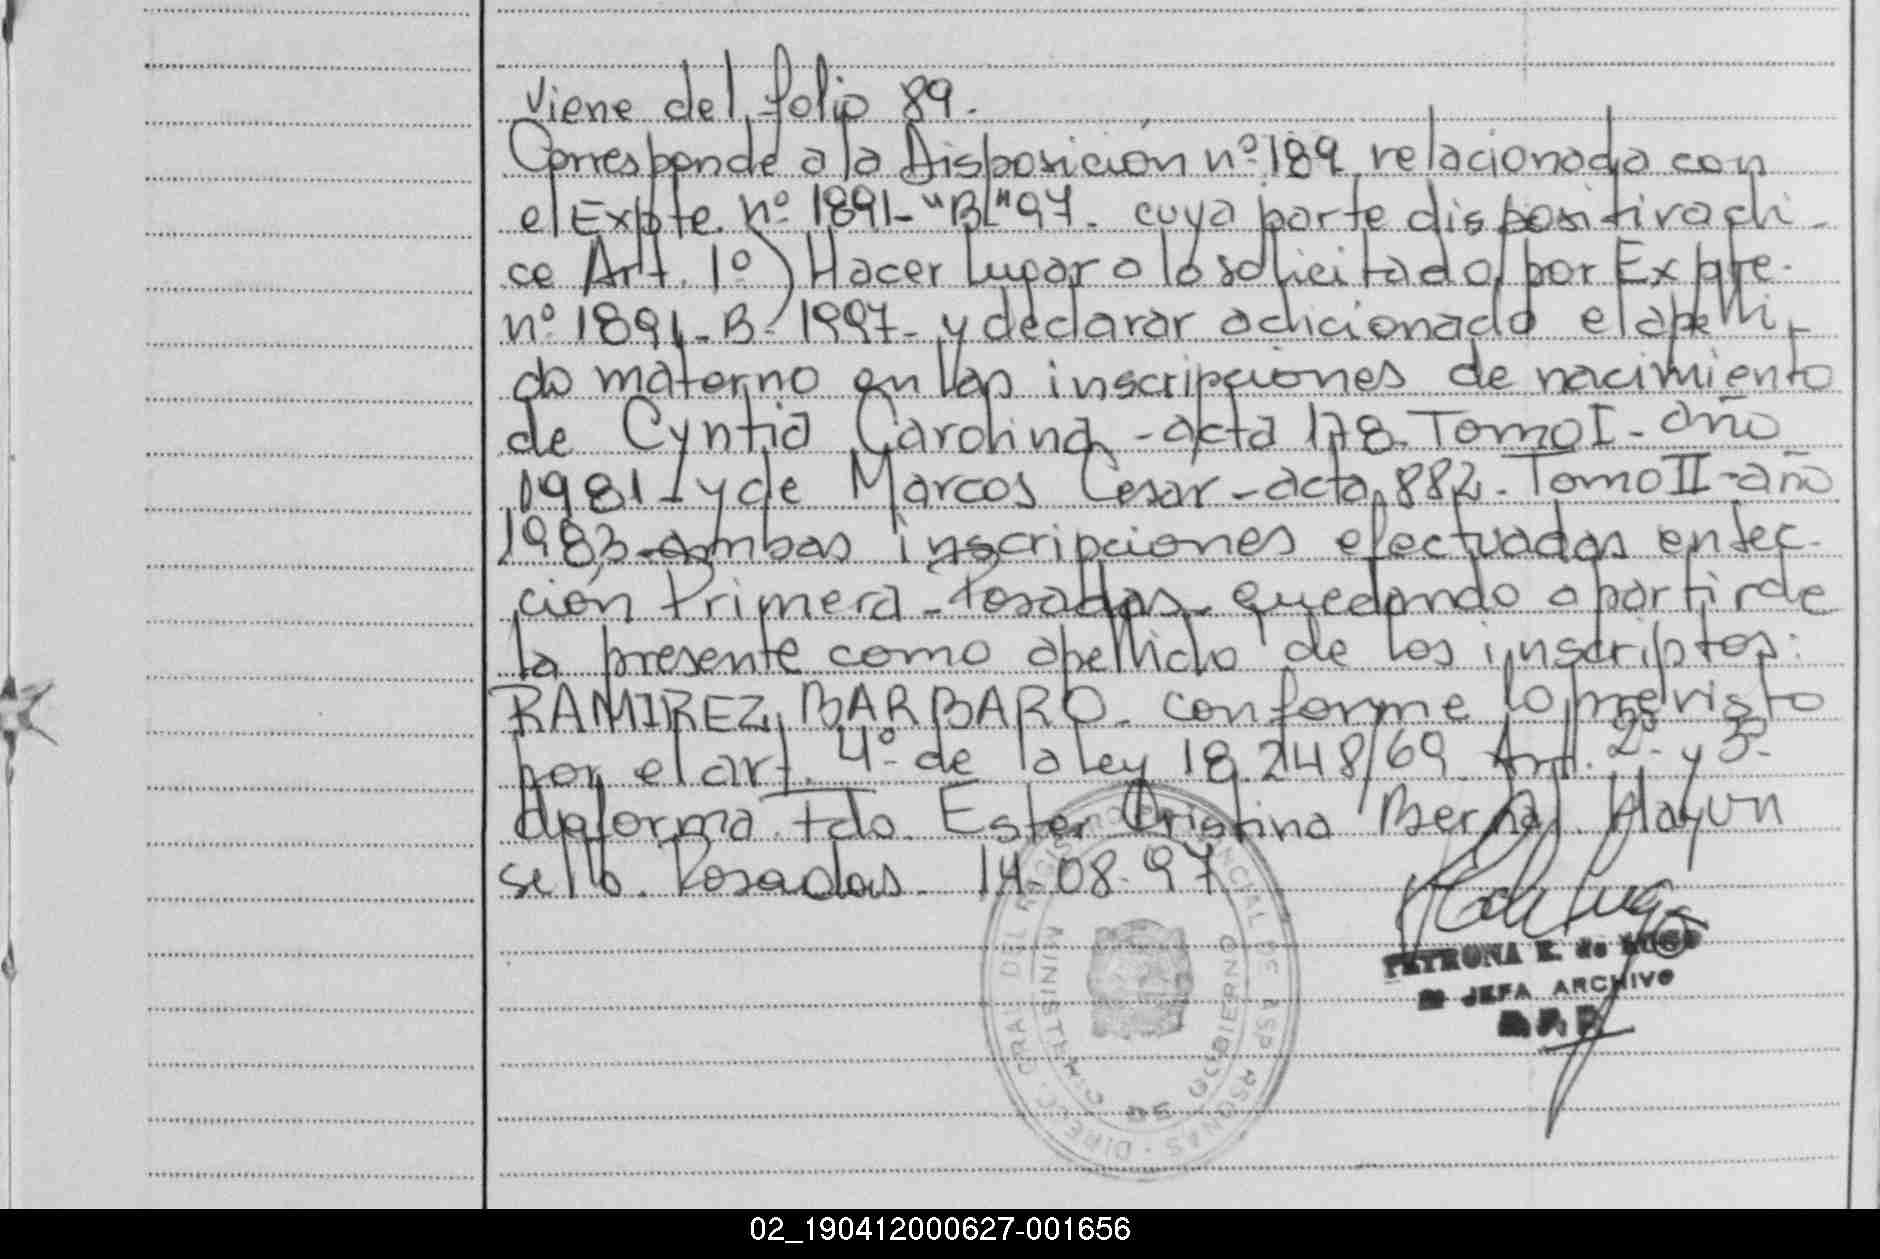 Viene del folio 89.
Corresponde a la Disposición nº 189 relacionada con
el Expte. nº 1891-"B"97. cuya parte dispositiva di-
ce Art. 1º) Hacer lugar a lo solicitado por Expte.
nº 1891-B-1997- y declarar adicionado el apelli-
do materno en las inscripciones de nacimiento
de Cyntia Carolina -acta 178-Tomo I- año
1981- y de Marcos Cesar-acta 882-Tomo II-año
1983-ambas inscripciones efectuadas en Sec-
ción Primera-Posadas-quedando a partir de
la presente como apellido de los inscriptos:
RAMIREZ BARBARO- conforme lo previsto
por el art. 4º de la ley 18.248/69. Art. 2º y 3º
de forma. Fdo. Ester Cristina Bernal. Hay un
sello. Posadas. 14-08-97
PETRONA E. de LUGO
JEFA ARCHIVO
DIREC. GRAL DEL REGISTRO PROVINCIAL DE LAS PERSONAS
MINISTERIO DE GOBIERNO
02_190412000627-001656